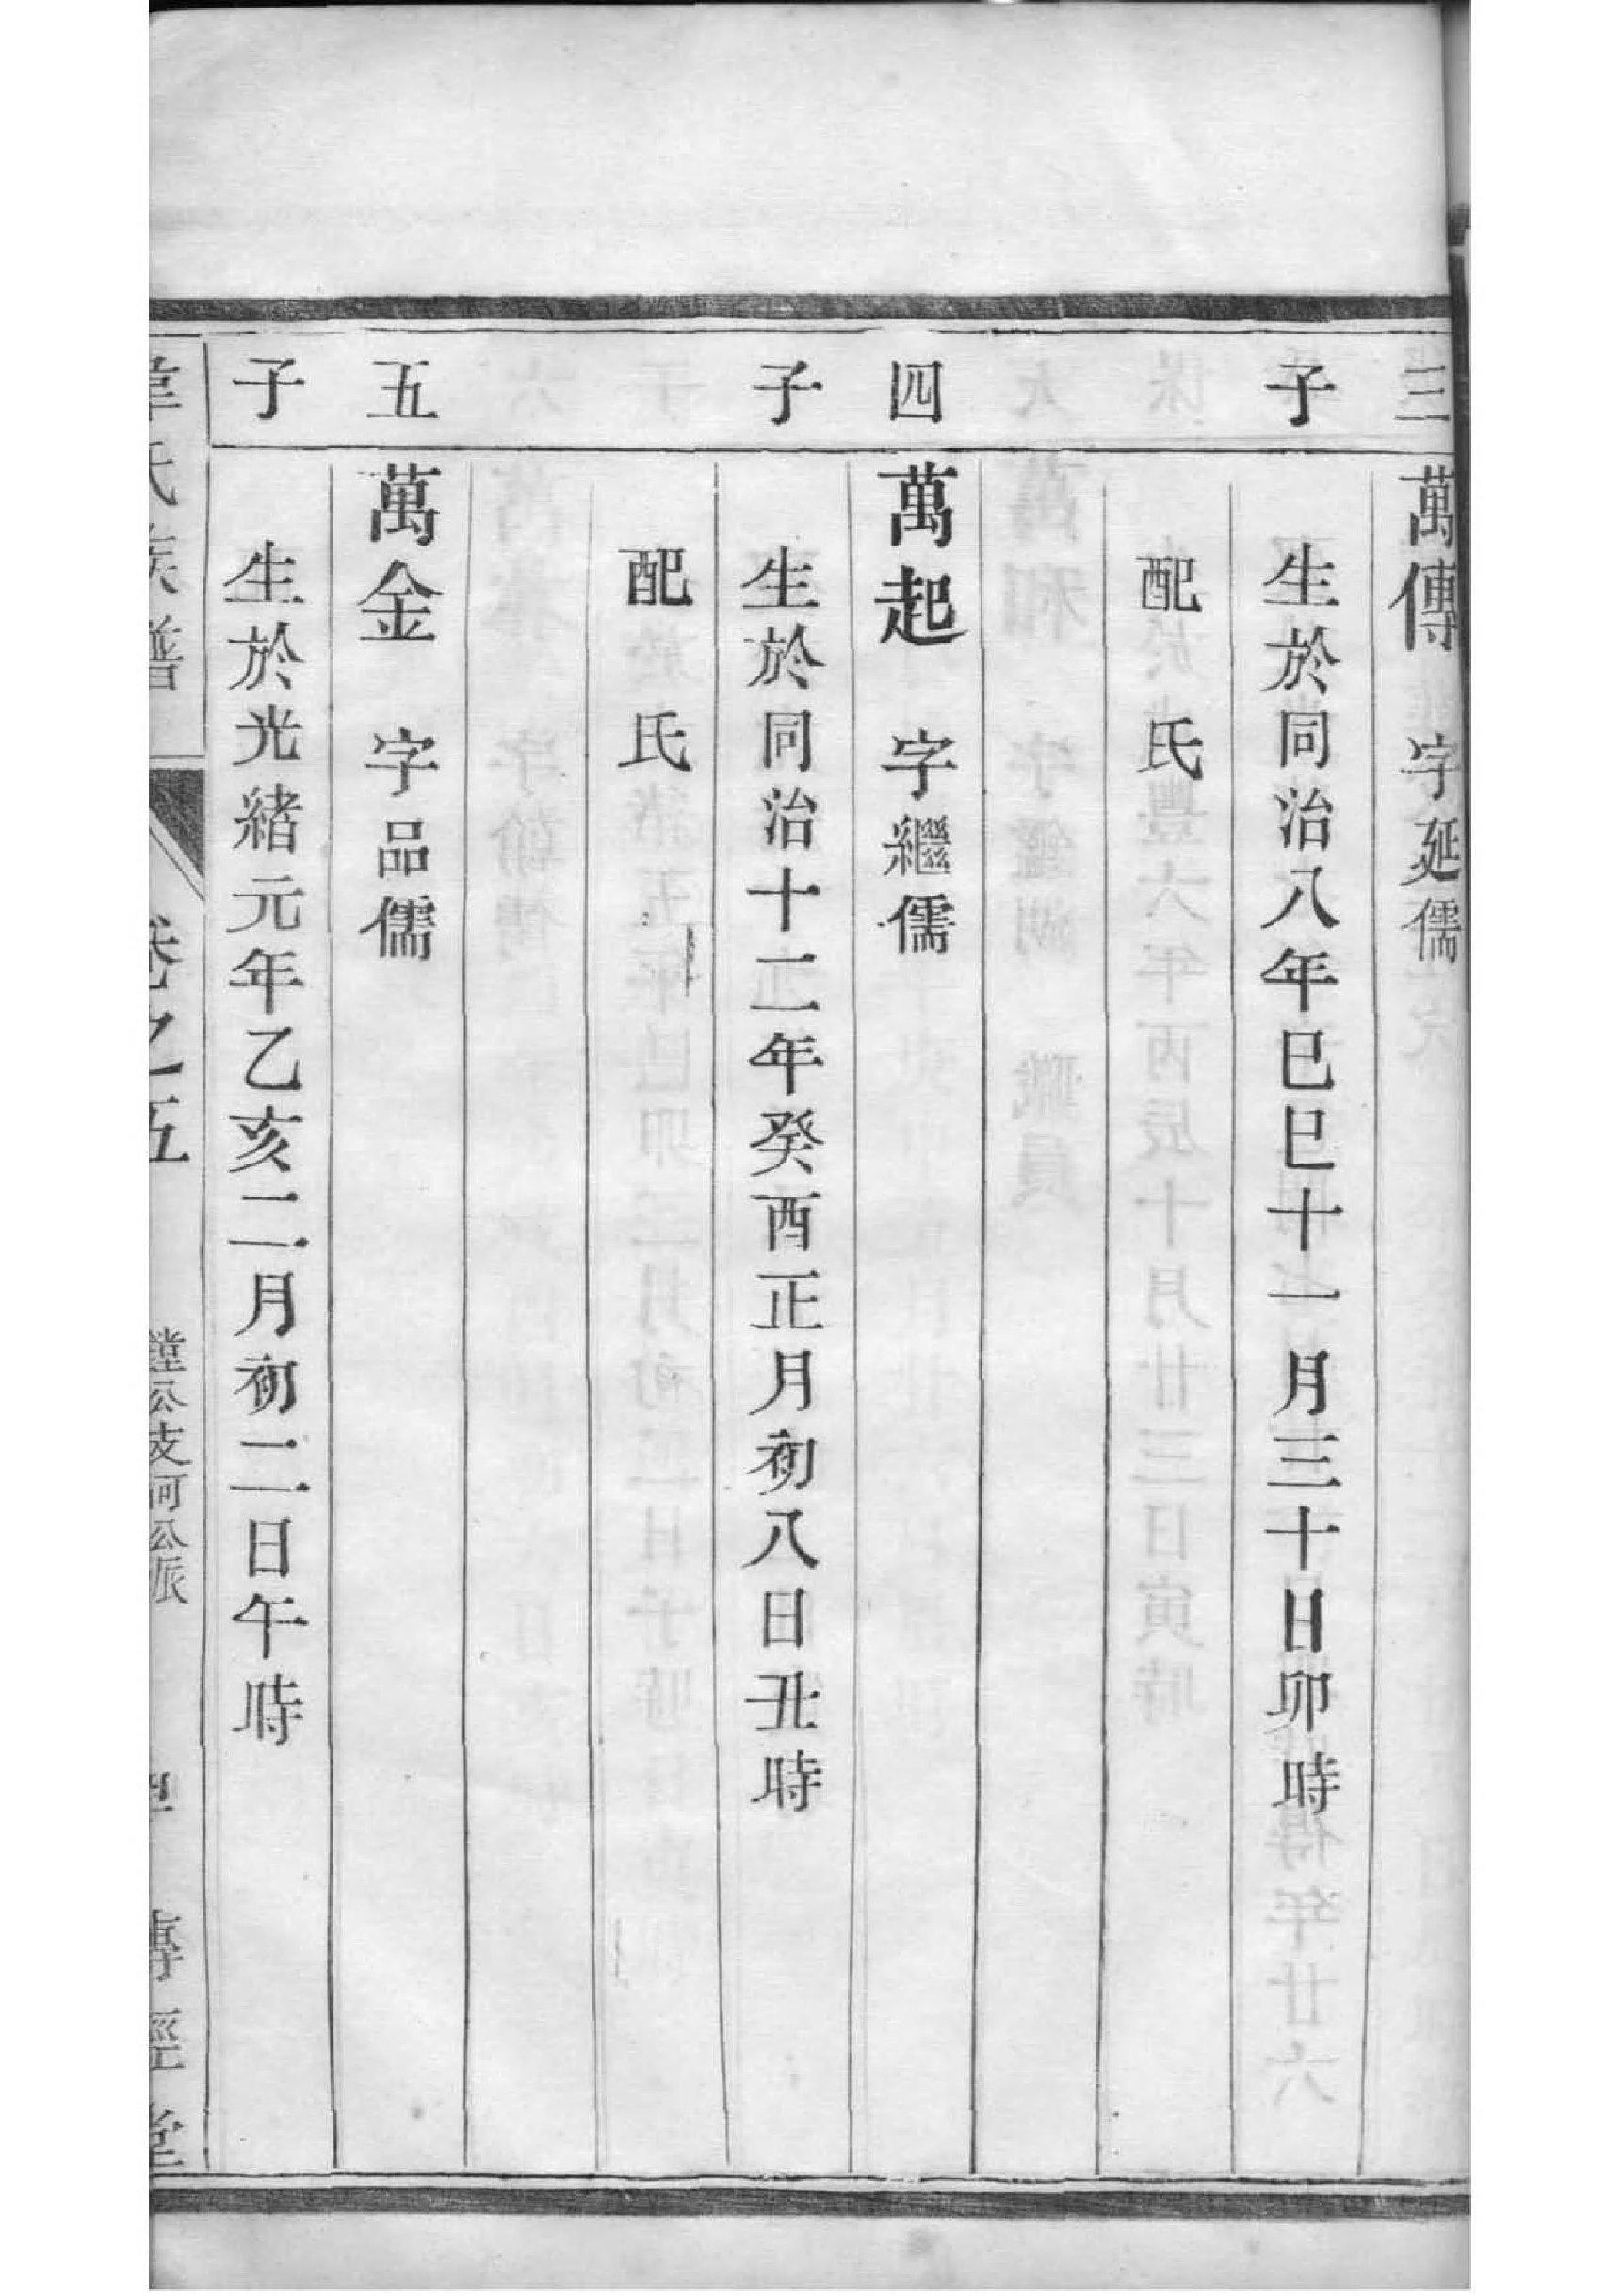 三 萬傳 字延儒
子 生於同治八年巳巳十一月三十日卯時
配 氏
四 萬起 字繼儒
子 生於同治十二年癸酉正月初八日丑時
配 氏
五 萬金 字品儒
子 生於光緒元年乙亥二月初二日午時
氏族譜 卷之五 公支河公派 傳經堂